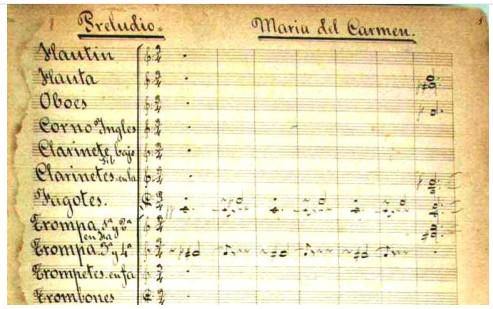 Preludio.
Maria del Carmen.
Flautin
Flauta
Oboes
Corno Ingles
Clarinete bajo
Sib
Clarinetes en la
Fagotes.
Trompa 1ª y 2ª
en Fa
Trompa 3ª y 4ª
Trompetes en fa
Trombones